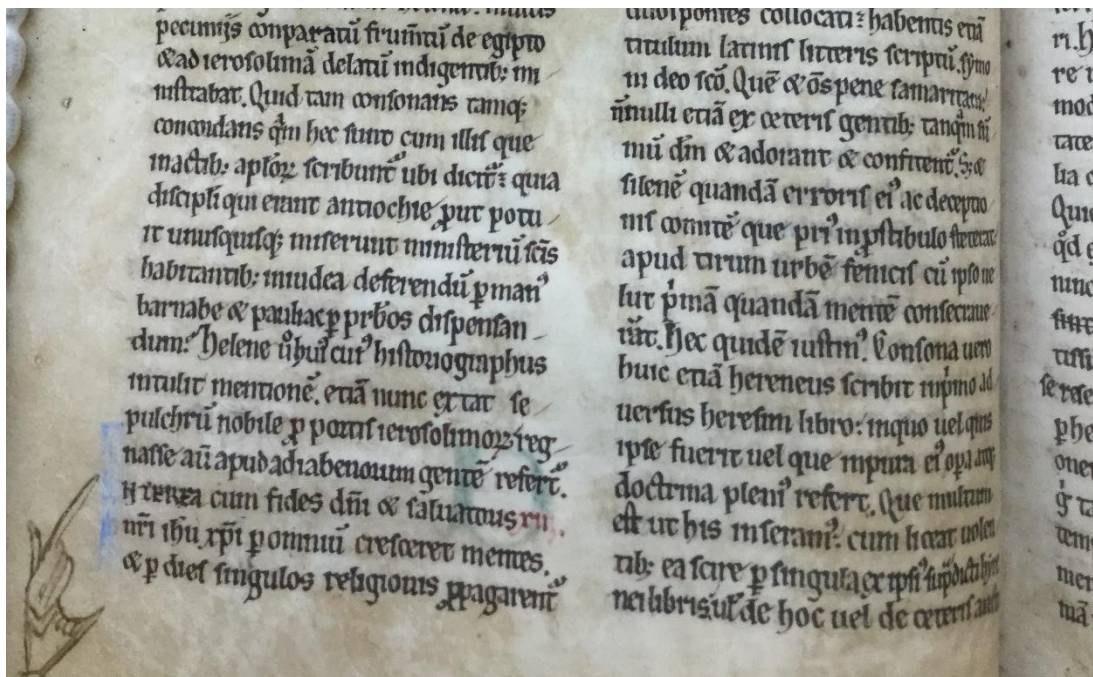 pecuniis ꝯnparatū frum̄tū de egipto
&ad ierosolimā delatū indigentib; mi
nistrabat. Quid tam consonans tamq;
concordans q̄m hec sunt cum illis que
inactib; aplōꝝ scribunt᷑ ubi dicit᷑: quia
discipli qui erant antiochie, ꝓut potu
it unusquisq; miserunt ministeriū scīs
habitantib; iniudea deferendū ꝑmanꝰ
barnabe & pauli ac ꝑ prb̄os dispensan
dum. Helene ũ huiꝰ cuiꝰ historiographus
intulit mentionē. etiā nunc extat se
pulchrū nobile ꝓ portis ierosolimoꝝ reg
nasse aū apud adiabenorum gentē refert᷑.
INTEREA cum fides dn̄i & saluatoris xiii.
nr̄i ihu xp̄i ꝑ omniū cresceret mentes.
& ꝑ dies singulos religionis ꝓpagarent᷑
collocati: habentis etiā
titulum latinis litteris scriptū. symo
ni deo sc̄o. Quē & om̄s pene samaritani:
n̄nulli etiā ex ceteris gentib; tanq̄m sū
mū dm̄ & adorant & confitent᷑. S; &
silenē quandā erroris eiꝰ ac deceptio
nis comitē que priꝰ inꝓstibulo steterat
apud tirum urbē fenicis cū ipso ue
lut p̍mā quandā mentē consecraue
rūt. Hec quidē iustinꝰ. Consona uero
huic etiā hereneus scribit inp̍mo ad
uersus heresim libro: inquo uel quis
ipse fuerit uel que inpura eiꝰ oꝑa atq;
doctrina pleniꝰ refert. Que multum
est ut his inseramꝰ: cum liceat uolen
tib; ea scire ꝑ singula ex ipsiꝰ
nei libris. ut̄ de hoc uel de ceteris